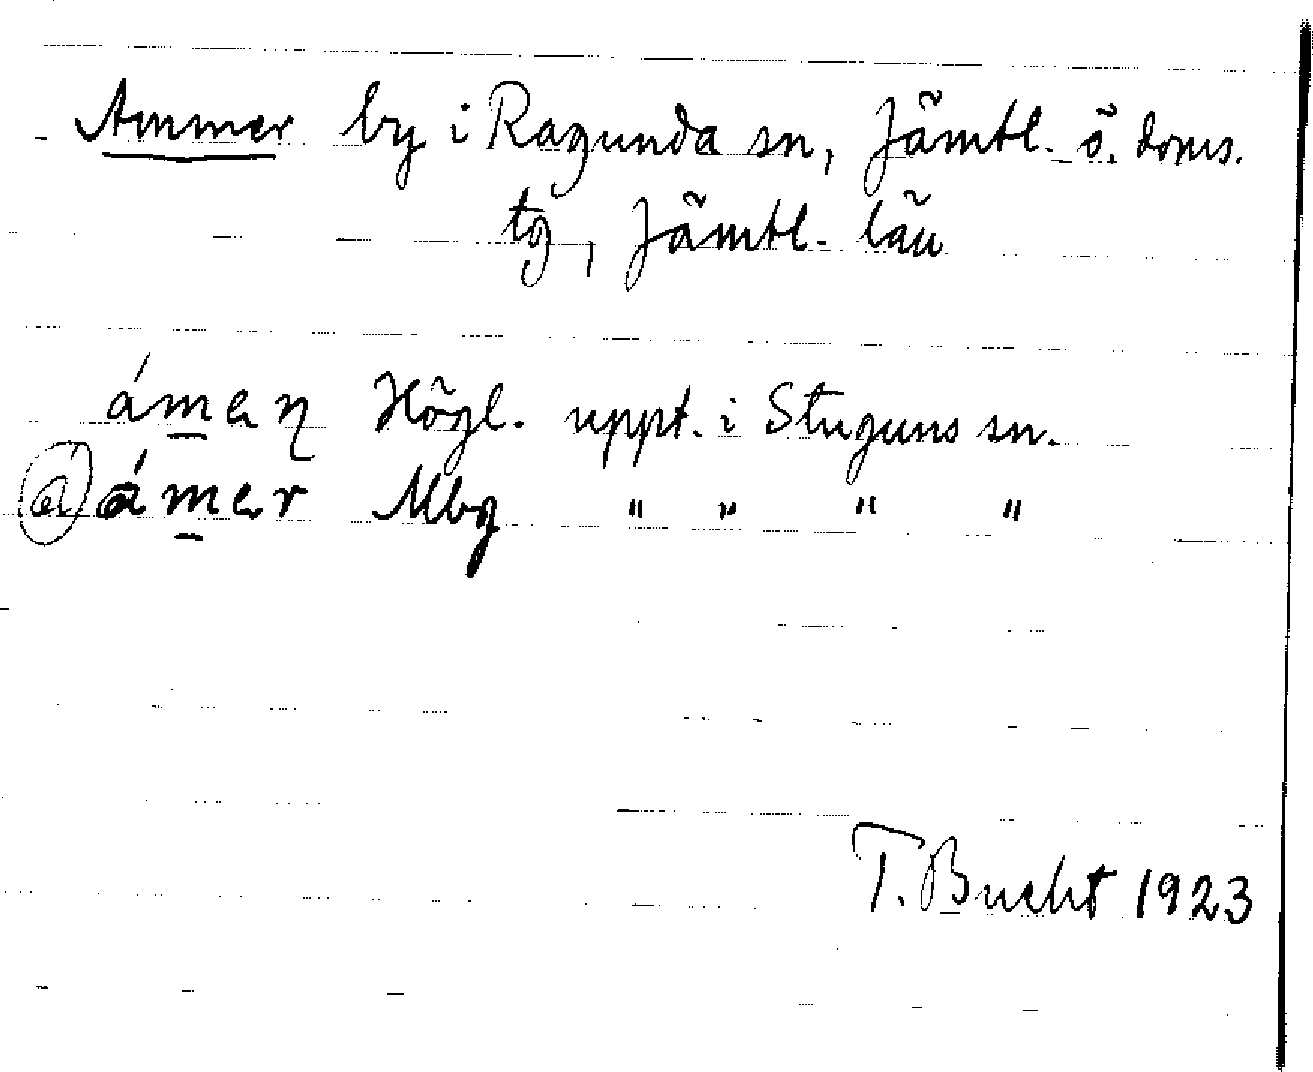 Ammer by i Ragunda sn, Jämtl. ö. doms.
tg, Jämtl. län
ámeɳ Högl. uppt. i Stuguns sn.
á ámer Mbg " " " "
T. Bucht 1923